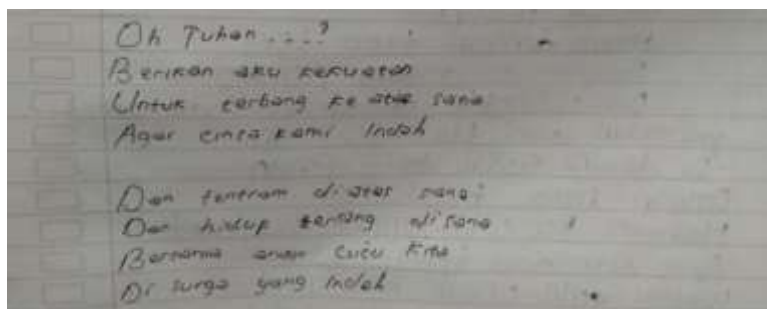 Oh Tuhan...?
Berikan aku kekuatan
Untuk terbang ke atas sana
Agar cinta kami Indah
Dan tentram diatas sana
Dan hidup tenang disana
Bersama anak cucu kita
Di surga yang indah